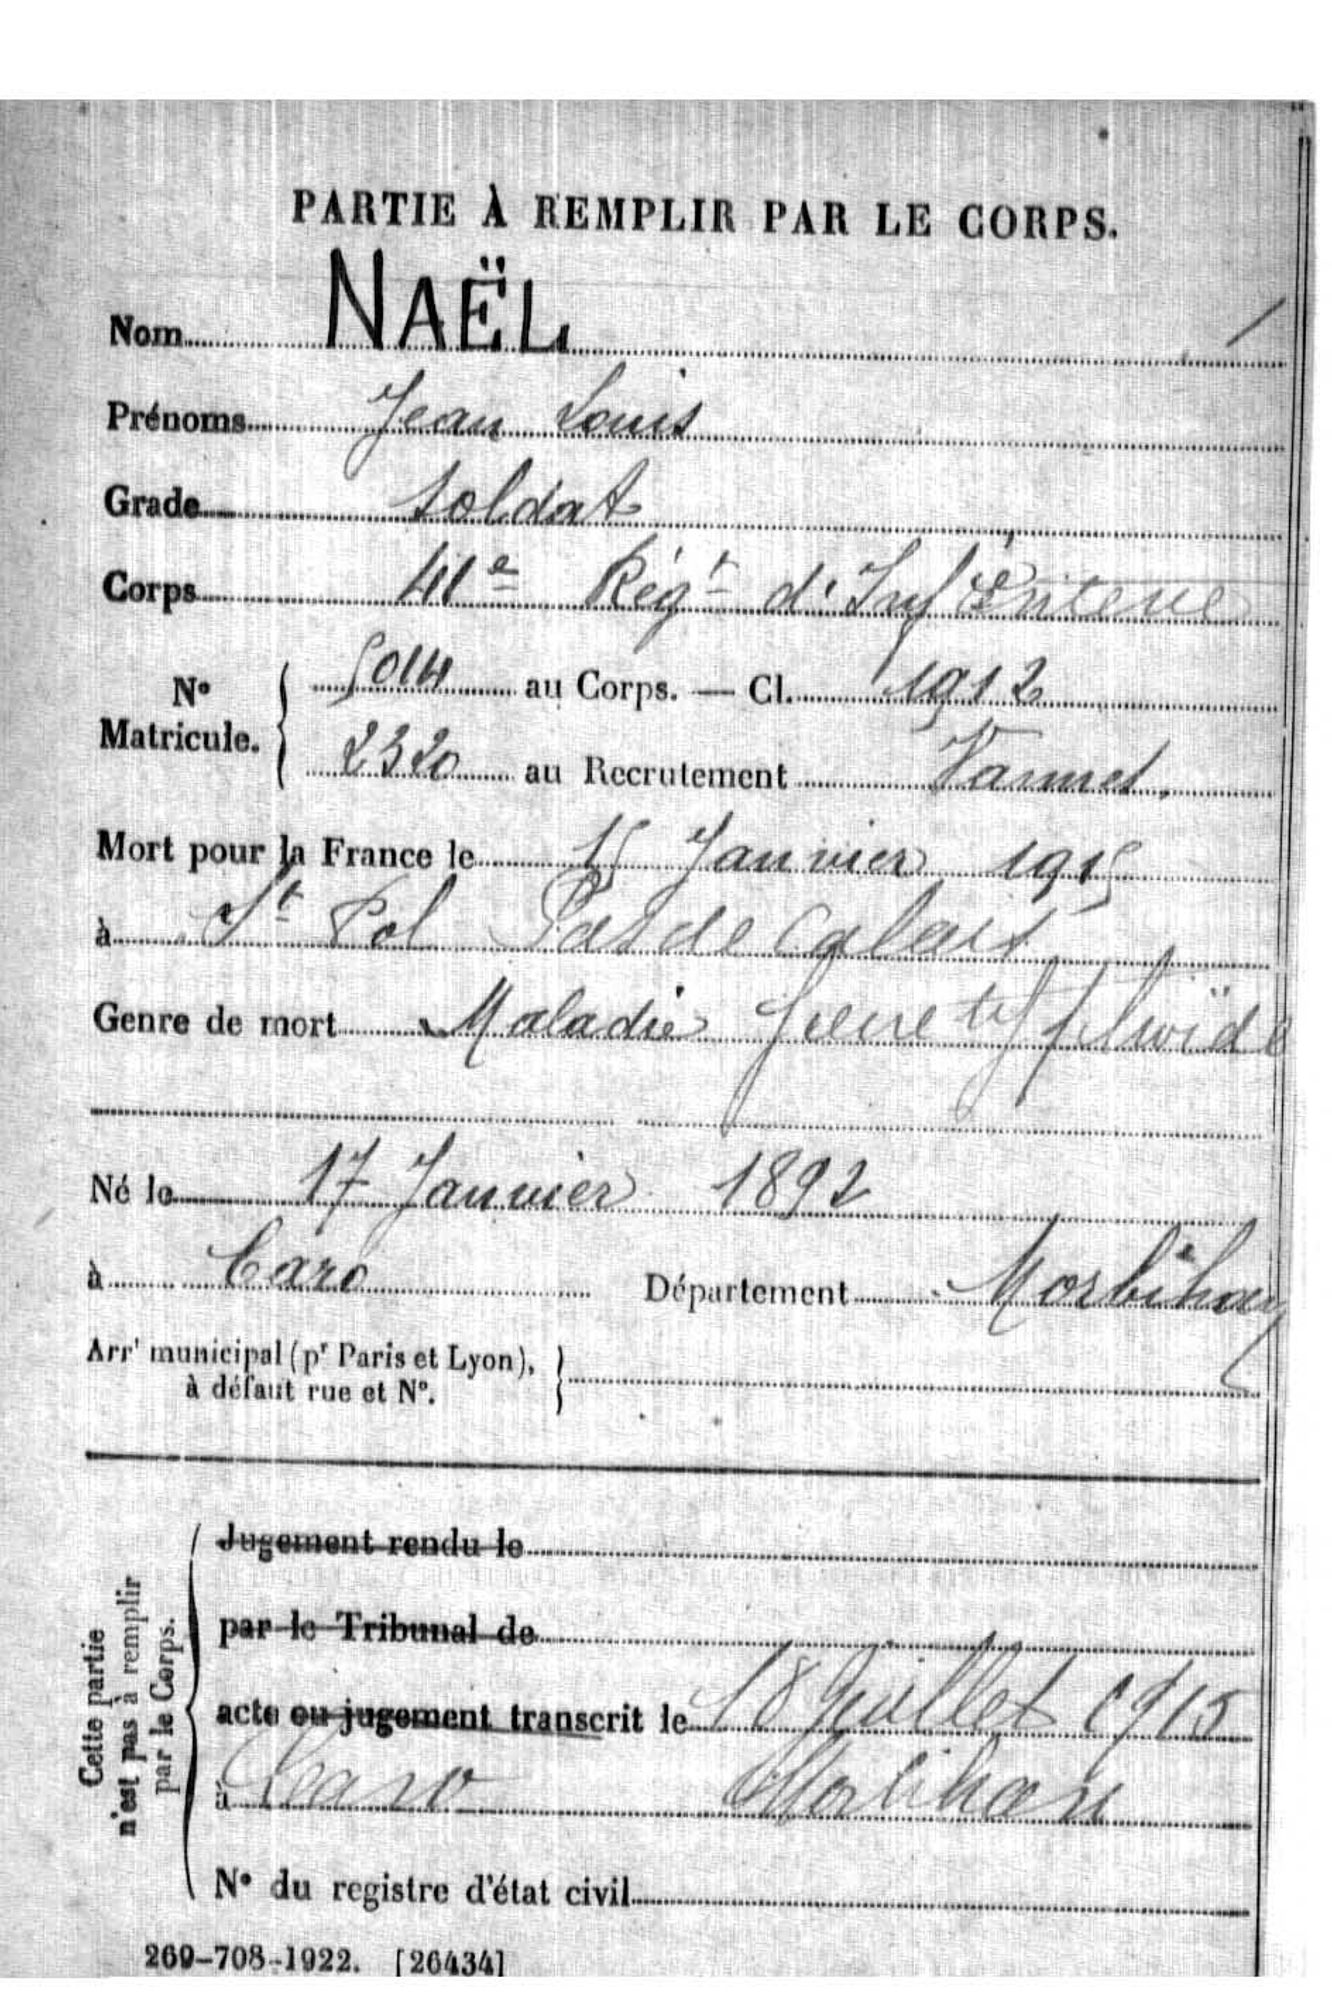 PARTIE À REMPLIR PAR LE CORPS.
Nom NAËL
Prénoms Jean Louis
Grade soldat
Corps 41e Régt d'Infanterie
N° Matricule. { 5014 au Corps. — Cl. 1912
2320 au Recrutement Vannes.
Mort pour la France le 15 Janvier 1915
à St Pol Pas de Calais
Genre de mort Maladie fièvre typhoïde
Né le 17 Janvier 1892
à Caro Département Morbihan
Arrt municipal (pr Paris et Lyon),
à défaut rue et N°.
Cette partie
n'est pas à remplir
par le Corps.
Jugement rendu le
par le Tribunal de
acte ou jugement transcrit le 18 Juillet 1915
à Caro Morbihan
N° du registre d'état civil
269-708-1922. [26434]